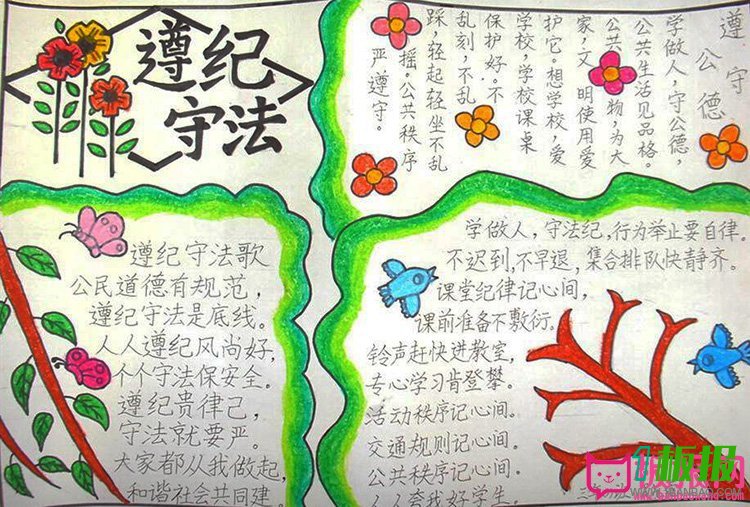 遵纪
守法
遵守
公德
学做人,守公德,
公共生活见品格。
公共 物,为大
家,文明使用爱
护它。想学校,爱
学校,学校课桌
保护好。不
乱刻,不乱
踩,轻起轻坐不乱
摇。公共秩序
严遵守。
遵纪守法歌
公民道德有规范,
遵纪守法是底线。
人人遵纪风尚好,
个个守法保安全。
遵纪贵律己,
守法就要严。
大家都从我做起,
和谐社会共同建
学做人,守法纪,行为举止要自律。
不迟到,不早退,集合排队快静齐。
课堂纪律记心间,
课前准备不敷衍。
铃声赶快进教室,
专心学习肯登攀。
活动秩序记心间。
交通规则记心间。
公共秩序记心间。
人人夸我好学生
板报